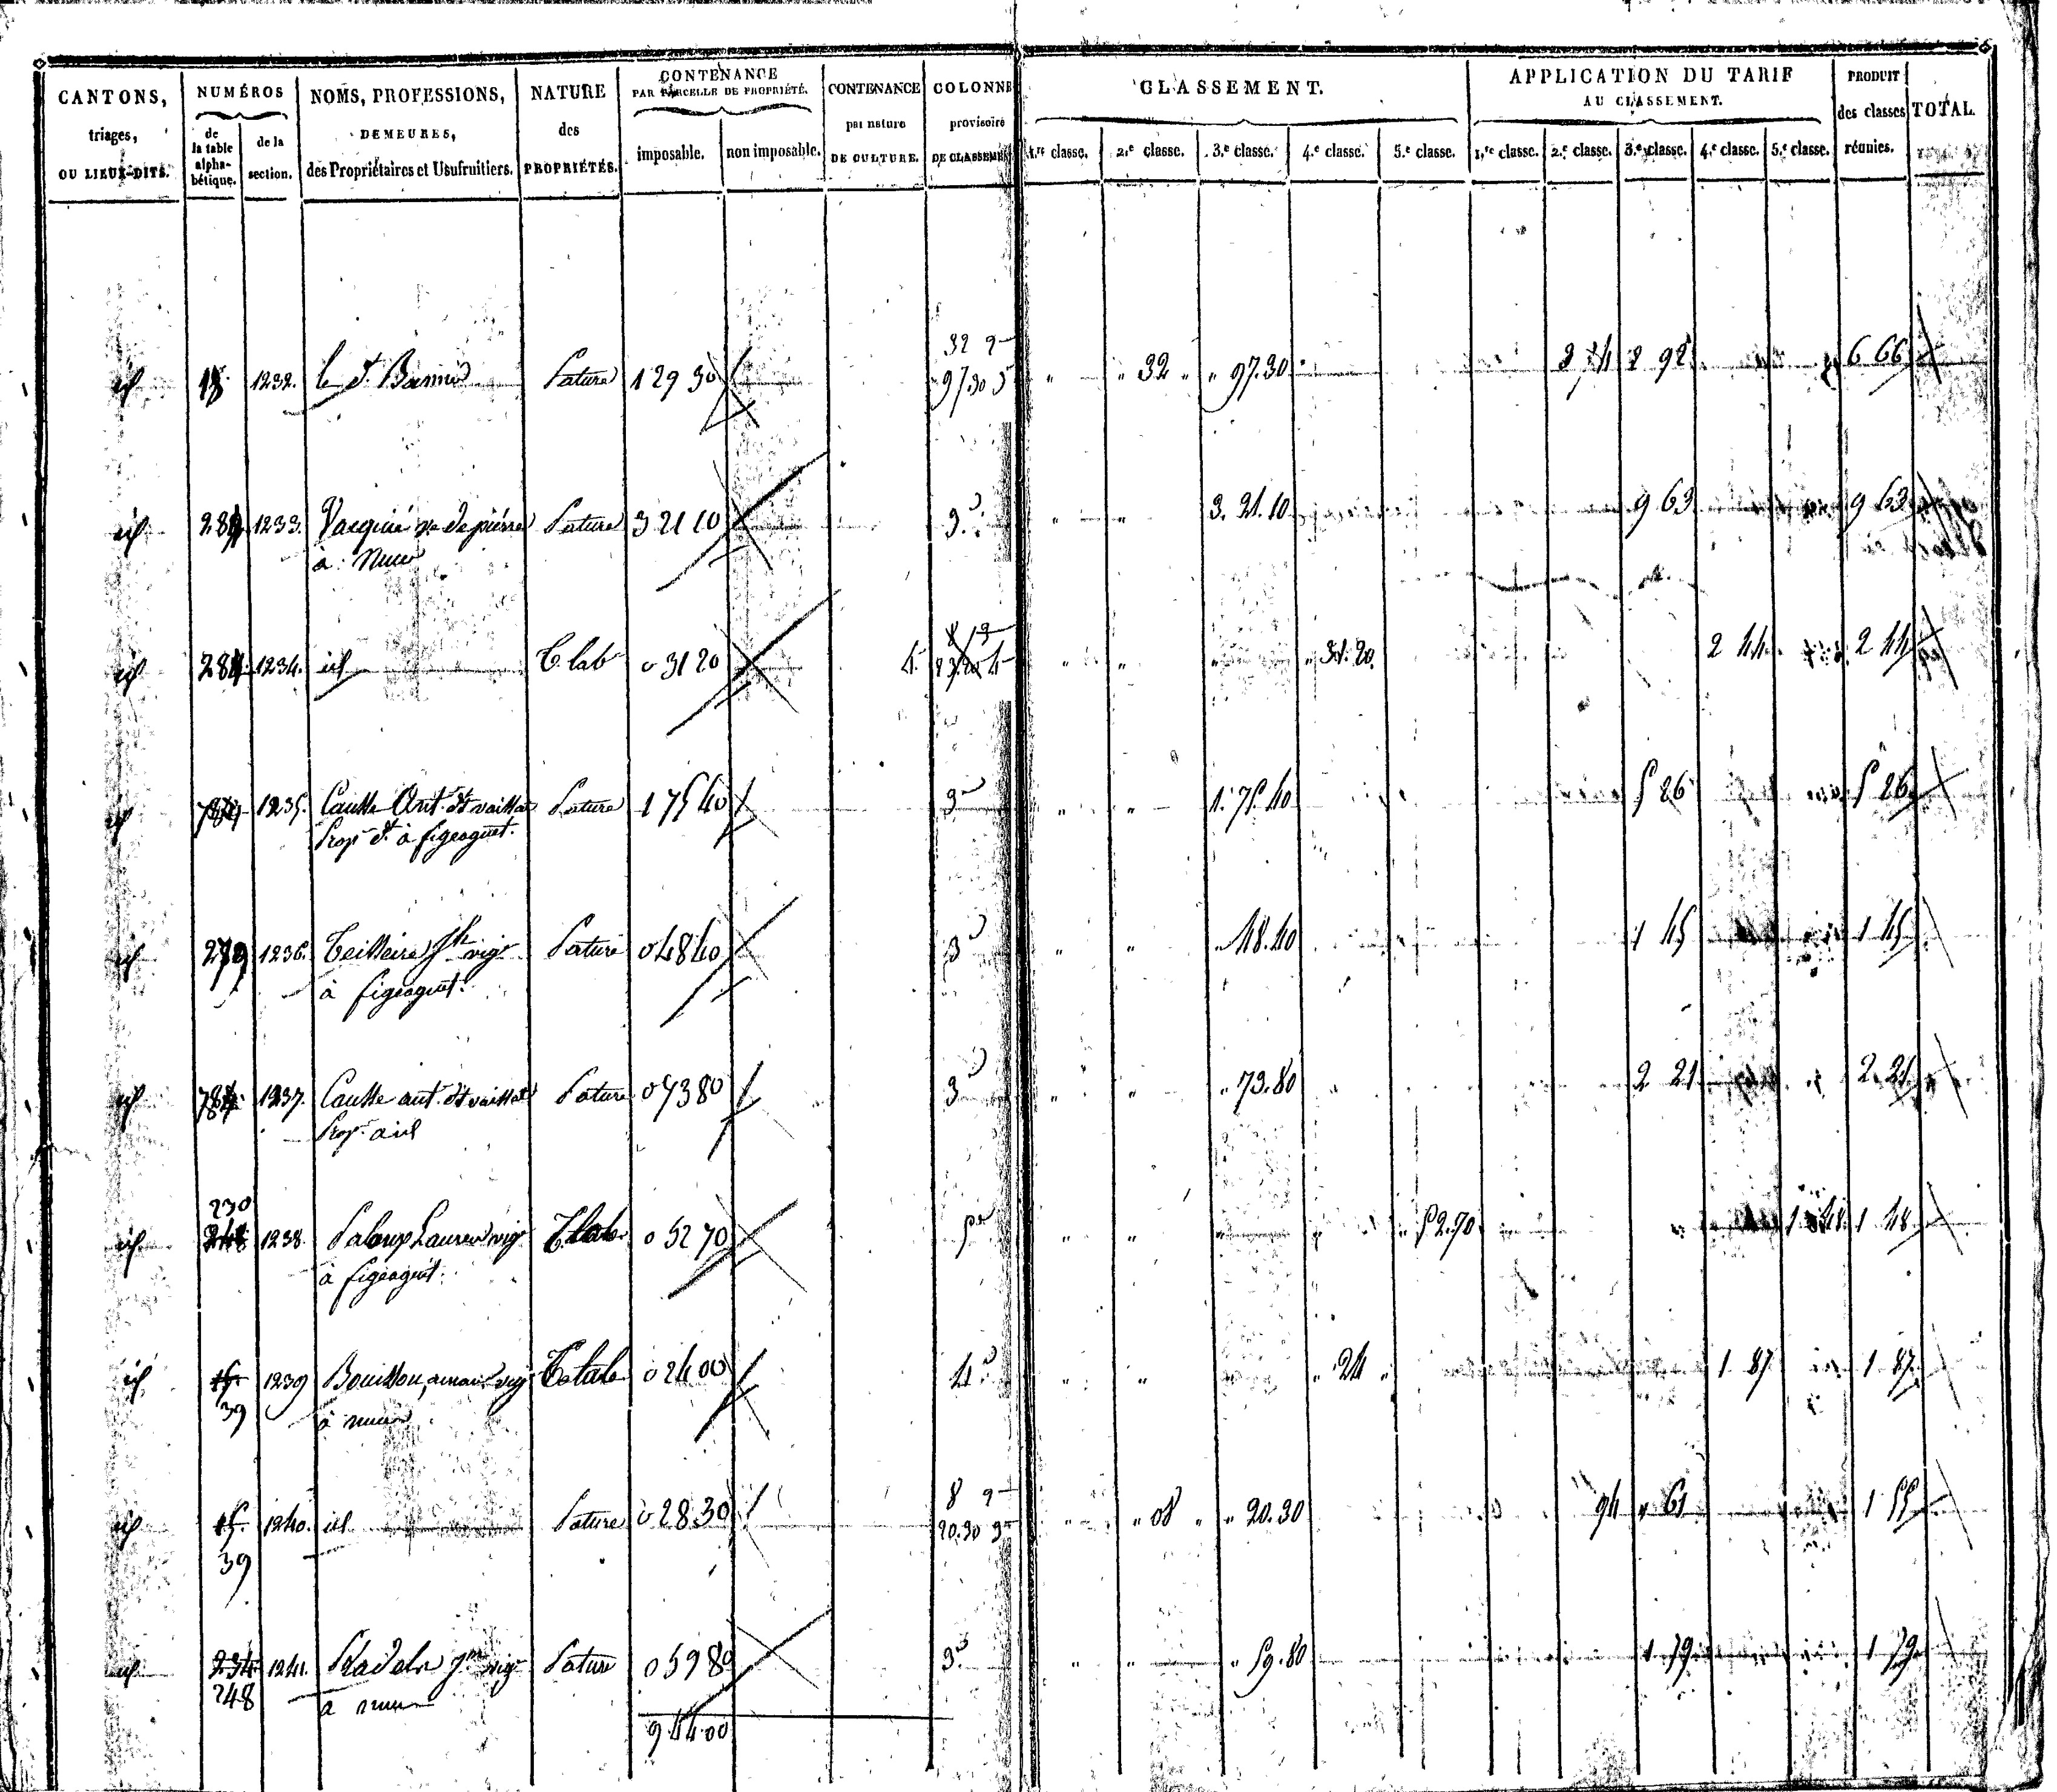 CANTONS, triages, OU LIEUX-DITS. | NUMÉROS de la table alphabétique. | de la section. | NOMS, PROFESSIONS, DEMEURES, des Propriétaires et Usufruitiers. | NATURE des PROPRIÉTÉS. | CONTENANCE PAR PARCELLE DE PROPRIÉTÉ. imposable. | non imposable. | CONTENANCE par nature DE CULTURE. | COLONNE provisoire DE CLASSEMENT | CLASSEMENT. 1.re classe. | 2.e classe. | 3.e classe. | 4.e classe. | 5.e classe. | APPLICATION DU TARIF AU CLASSEMENT. 1.re classe. | 2.e classe. | 3.e classe. | 4.e classe. | 5.e classe. | PRODUIT des classes réunies. | TOTAL.
32 2
id 18 1232. le d. Pature 1 29 30 97.30 3 " " 32 " " 97.30 2 92 6 66
id 1233. Vacquié ve de pierre Pature 3 21 10 3 " " 3. 21. 10 9 63 9 63
à Mur
id 1234. id T. lab 0 31 20 4 " " " 31. 20 2 44 2 44
id 1235. Causse Ant. dt vaissat Pature 1 75 40 3 " " 1. 75. 40 5 26 5 26
Prop. dt à figeaguet.
id 279 1236. Teisseire Jh vig. Pature 0 48 40 3 " " " 48. 40 1 45 1 45
à figeaguet.
id 1237. Causse ant. dt vaissat Pature 0 73 80 3 " " " 73. 80 2 21 2 21
Prop. à id
230
id 248 1238. Laurens vig. T. lab. 0 52 70 5 " " " " " 52. 70 1 48 1 48
à figeaguet.
id 15 1239 Bouisson, vig. T. lab. 0 24 00 4 " " " " 24 " 1 87 1 87
39 à mur
8 2
id 15 1240. id Pature 0 28 30 20.30 3 " " 08 " " 20. 30 94 " 61 1 55
39
id 234 1241. Pradeln vig. Pature 0 59 80 3 " " " 59. 80 1 79 1 79
248 à mur
9 44 00